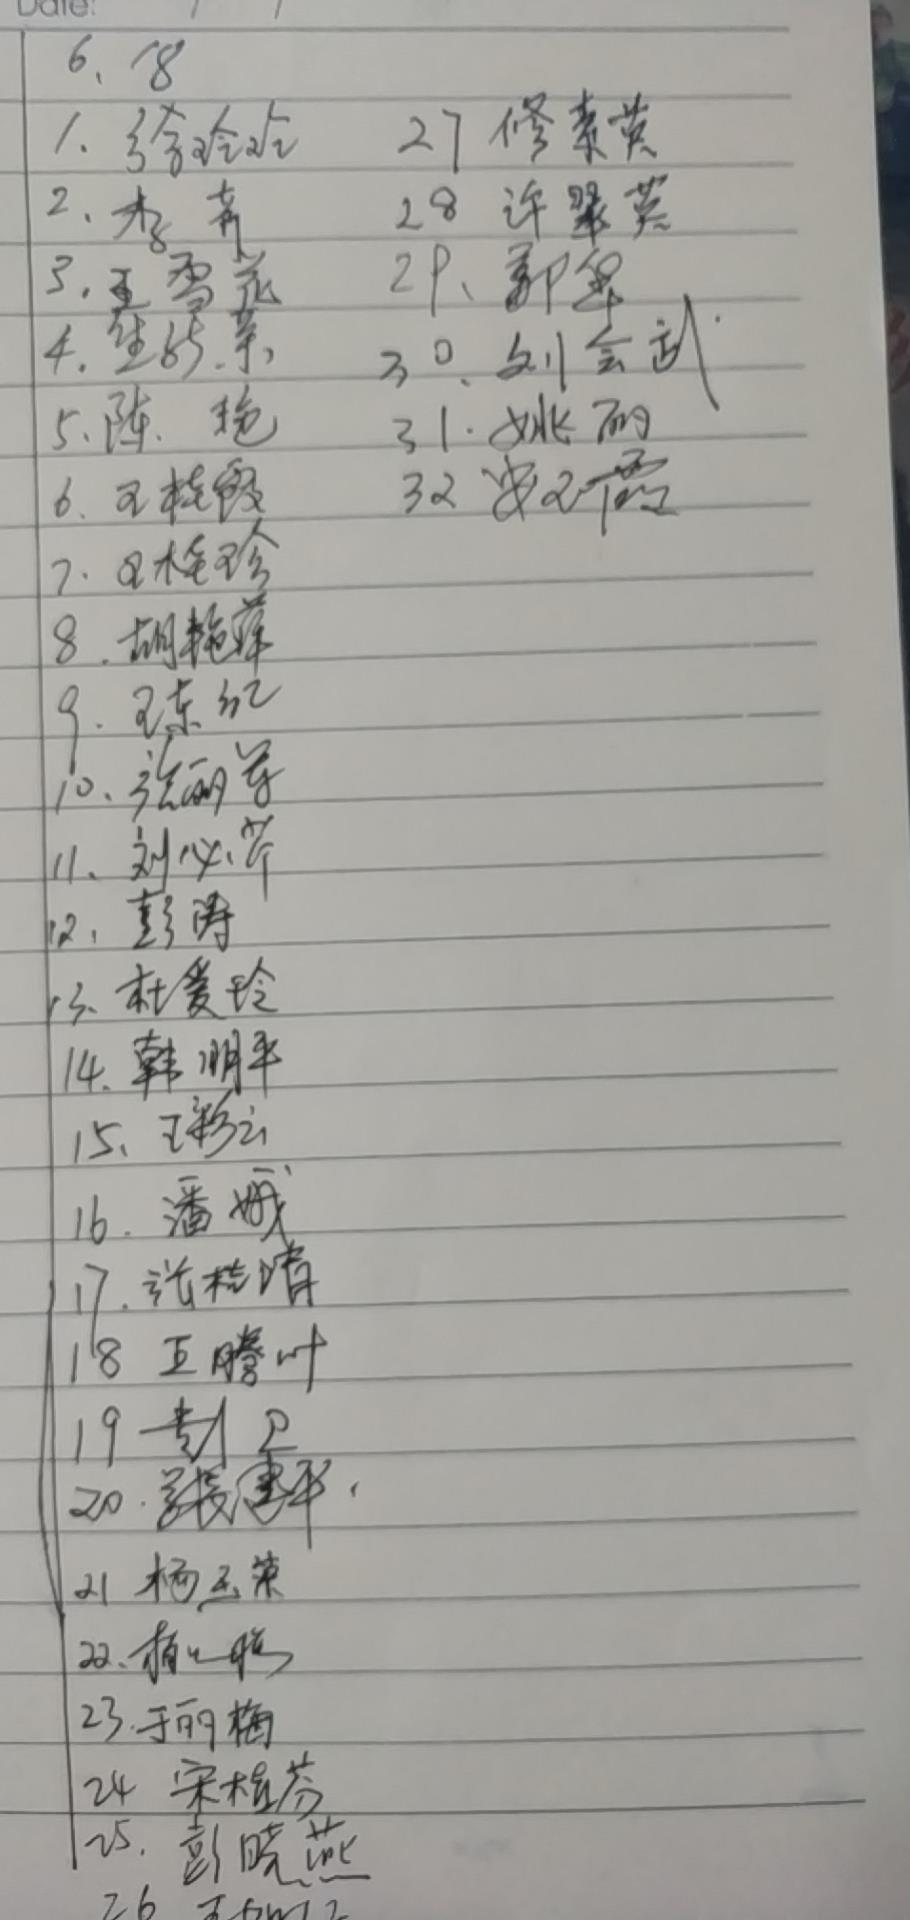 Date:
6. 18
1. 徐玲玲
2. 李奇
3. 王雪花
4. 生
5. 陈艳
6. 王桂霞
7. 王桂珍
8. 胡艳萍
9. 王东红
10. 张丽芳
11. 刘必芹
12. 彭涛
13. 杜爱玲
14. 韩明平
15. 王彩云
16. 潘娥
17. 张桂清
18 王腾叶
19 卫
20. 张建平
21 杨玉荣
22. 艳
23. 于丽梅
24 宋桂芬
25. 彭晓燕
26 王
27 修素英
28 许翠英
29. 郭军
30. 刘会武
31. 姚丽
32 安霞